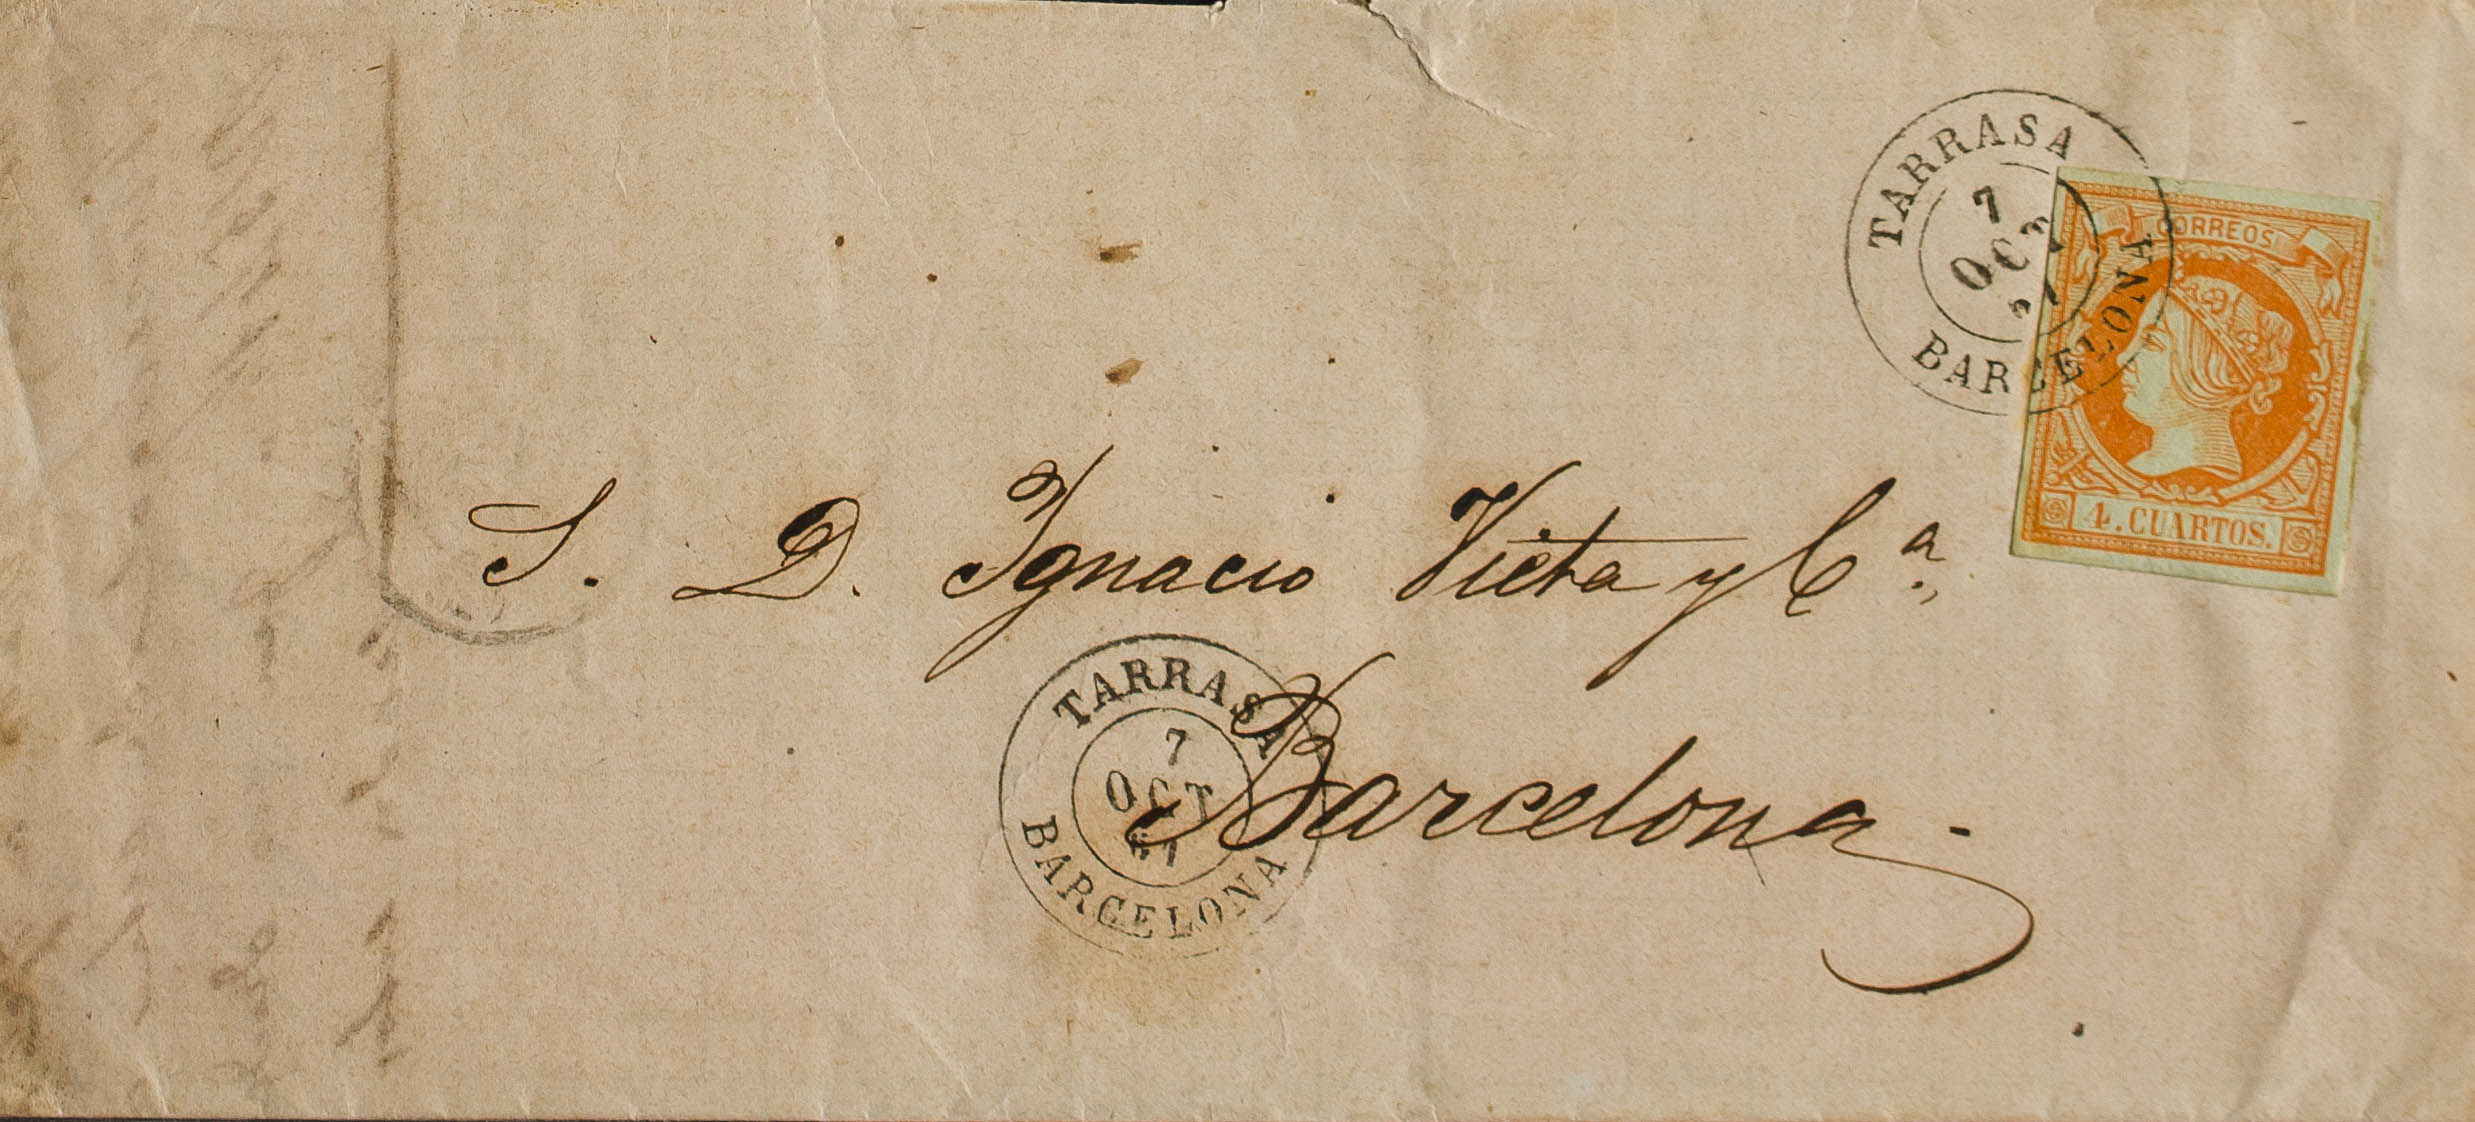 TARRASA
7
OCT
BARCELONA
CORREOS
4. CUARTOS.
S. D. Ignacio Vieta y Cª.,
Barcelona.
TARRASA
7
OCT
BARCELONA